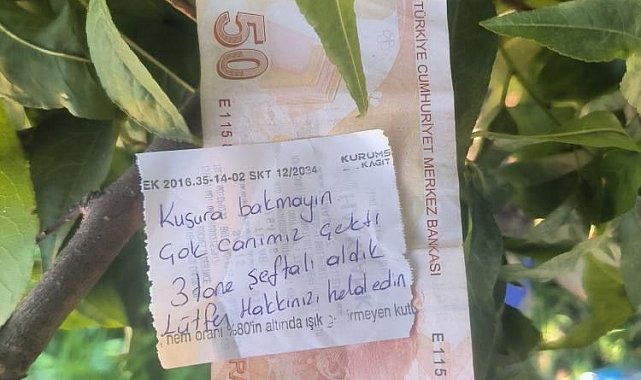 50
E 115
TÜRKİYE CUMHURİYET MERKEZ BANKASI
EK 2016.35-14-02 SKT 12/2034
KURUMS
KAGIT
Kusura bakmayın
Çok canımız çekti
3 tane şeftali aldık
Lütfen Hakkınızı helal edin
nem oranı %80'in altında ışık g irmeyen kutu
E 115